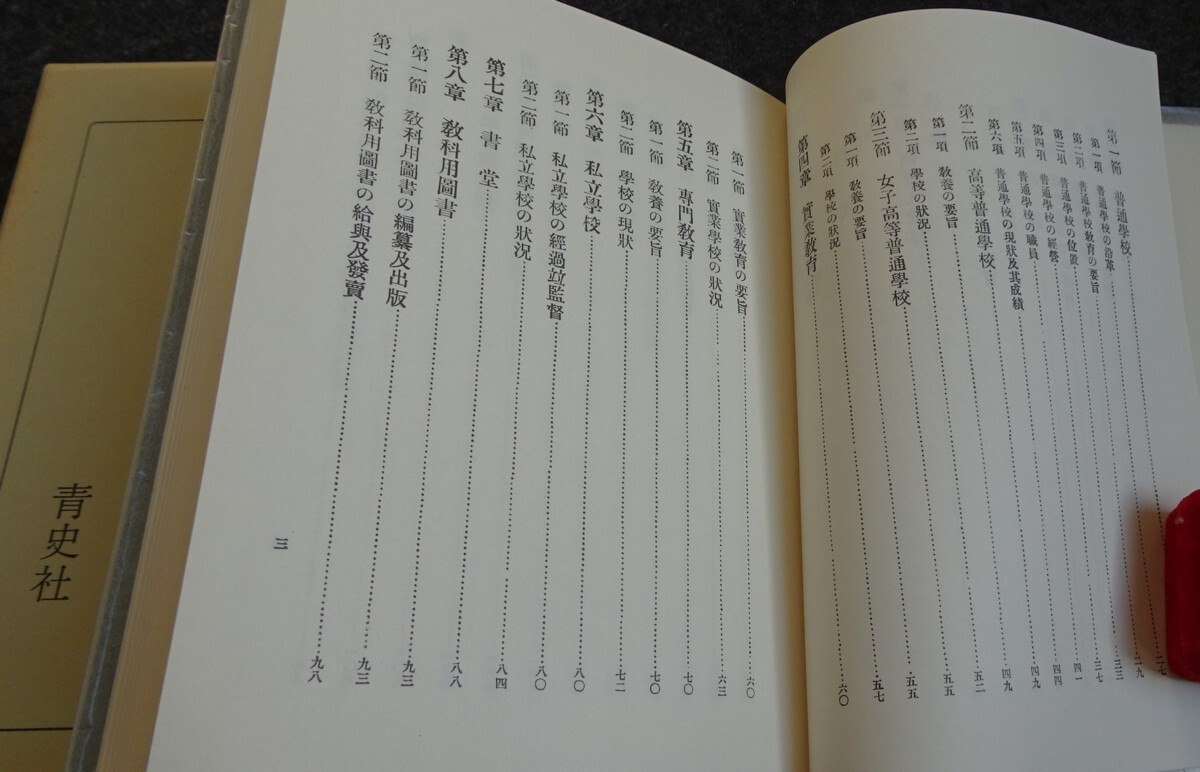 第一節 普通學校……二七
第一項 普通學校の沿革……二九
第二項 普通學校敎育の要旨……三三
第三項 普通學校の位置……三七
第四項 普通學校の經營……四一
第五項 普通學校の職員……四四
第六項 普通學校の現狀及其成績……四九
第二節 高等普通學校……四九
第一項 敎養の要旨……五二
第二項 學校の狀況……五五
第三節 女子高等普通學校……五五
第一項 敎養の要旨……五七
第二項 學校の狀況……六〇
第四章 實業敎育……
第一節 實業敎育の要旨……六〇
第二節 實業學校の狀況……六三
第五章 專門敎育……七〇
第一節 敎養の要旨……七〇
第二節 學校の現狀……七二
第六章 私立學校……八〇
第一節 私立學校の經過竝監督……八〇
第二節 私立學校の狀況……八四
第七章 書堂……八八
第八章 敎科用圖書……九三
第一節 敎科用圖書の編纂及出版……九三
第二節 敎科用圖書の給與及發賣……九八
三
青史社